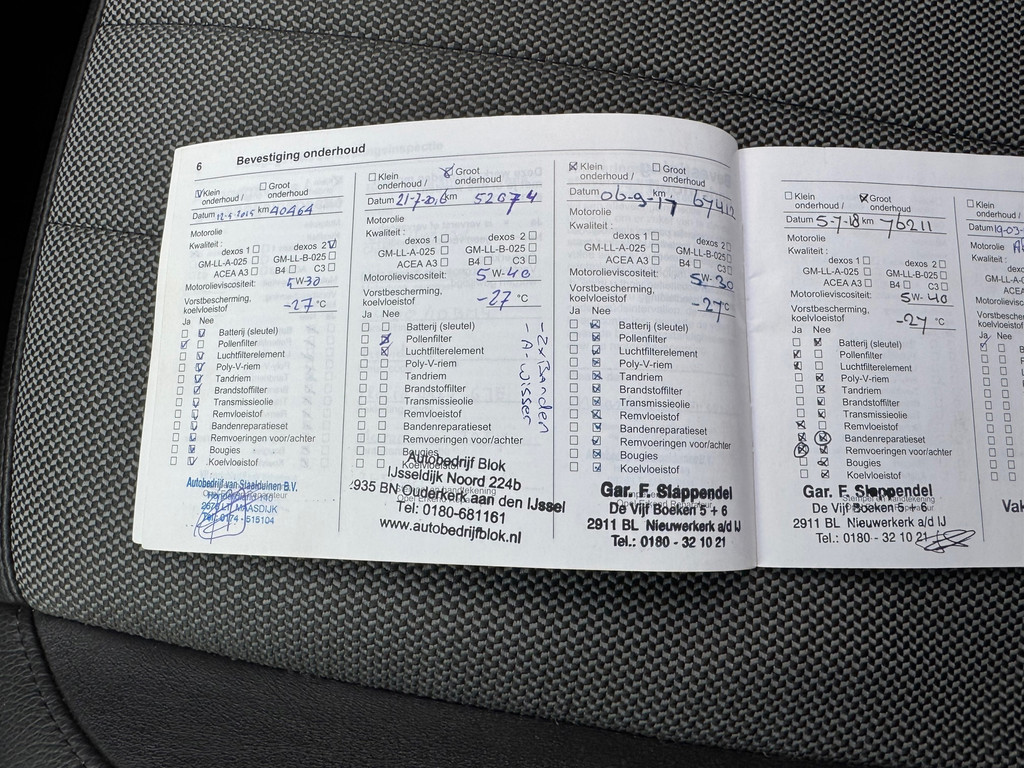 6 Bevestiging onderhoud
Klein onderhoud / Groot onderhoud
Datum 12-5-2015 km 40464
Motorolie
Kwaliteit:
dexos 1 dexos 2
GM-LL-A-025 GM-LL-B-025
ACEA A3 B4 C3
Motorolieviscositeit: 5W30
Vorstbescherming, koelvloeistof -27 °C
Ja Nee
Batterij (sleutel)
Pollenfilter
Luchtfilterelement
Poly-V-riem
Tandriem
Brandstoffilter
Transmissieolie
Remvloeistof
Bandenreparatieset
Remvoeringen voor/achter
Bougies
Koelvloeistof
Autobedrijf van Staalduinen B.V.
MAASDIJK
Tel: 0174 - 515104
Klein onderhoud / Groot onderhoud
Datum 21-7-2016 km 52074
Motorolie
Kwaliteit:
dexos 1 dexos 2
GM-LL-A-025 GM-LL-B-025
ACEA A3 B4 C3
Motorolieviscositeit: 5W-40
Vorstbescherming, koelvloeistof -27 °C
Ja Nee
Batterij (sleutel)
Pollenfilter
Luchtfilterelement
Poly-V-riem
Tandriem
Brandstoffilter
Transmissieolie
Remvloeistof
Bandenreparatieset
Remvoeringen voor/achter
Bougies
Koelvloeistof
- 2x Banden
- A-wisser
Autobedrijf Blok
IJsseldijk Noord 224b
2935 BN Ouderkerk aan den IJssel
Tel: 0180-681161
www.autobedrijfblok.nl
Klein onderhoud / Groot onderhoud
Datum 06-9-17 km 67412
Motorolie
Kwaliteit:
dexos 1 dexos 2
GM-LL-A-025 GM-LL-B-025
ACEA A3 B4 C3
Motorolieviscositeit: 5W-30
Vorstbescherming, koelvloeistof -27°C
Ja Nee
Batterij (sleutel)
Pollenfilter
Luchtfilterelement
Poly-V-riem
Tandriem
Brandstoffilter
Transmissieolie
Remvloeistof
Bandenreparatieset
Remvoeringen voor/achter
Bougies
Koelvloeistof
Gar. F. Slappendel
De Vijf Boeken 5 + 6
2911 BL Nieuwerkerk a/d IJ
Tel.: 0180 - 32 10 21
Klein onderhoud / Groot onderhoud
Datum 5-7-18 km 76211
Motorolie
Kwaliteit:
dexos 1 dexos 2
GM-LL-A-025 GM-LL-B-025
ACEA A3 B4 C3
Motorolieviscositeit: 5W-40
Vorstbescherming, koelvloeistof -27 °C
Ja Nee
Batterij (sleutel)
Pollenfilter
Luchtfilterelement
Poly-V-riem
Tandriem
Brandstoffilter
Transmissieolie
Remvloeistof
Bandenreparatieset
Remvoeringen voor/achter
Bougies
Koelvloeistof
Gar. F. Slappendel
De Vijf Boeken 5 + 6
2911 BL Nieuwerkerk a/d IJ
Tel.: 0180 - 32 10 21
Klein onderhoud /
Datum 19-03-
Motorolie
Kwaliteit:
dexos
GM-LL-A-025
ACEA
Motorolievisc
Vorstbescherm
koelvloeistof
Ja Nee
Vak